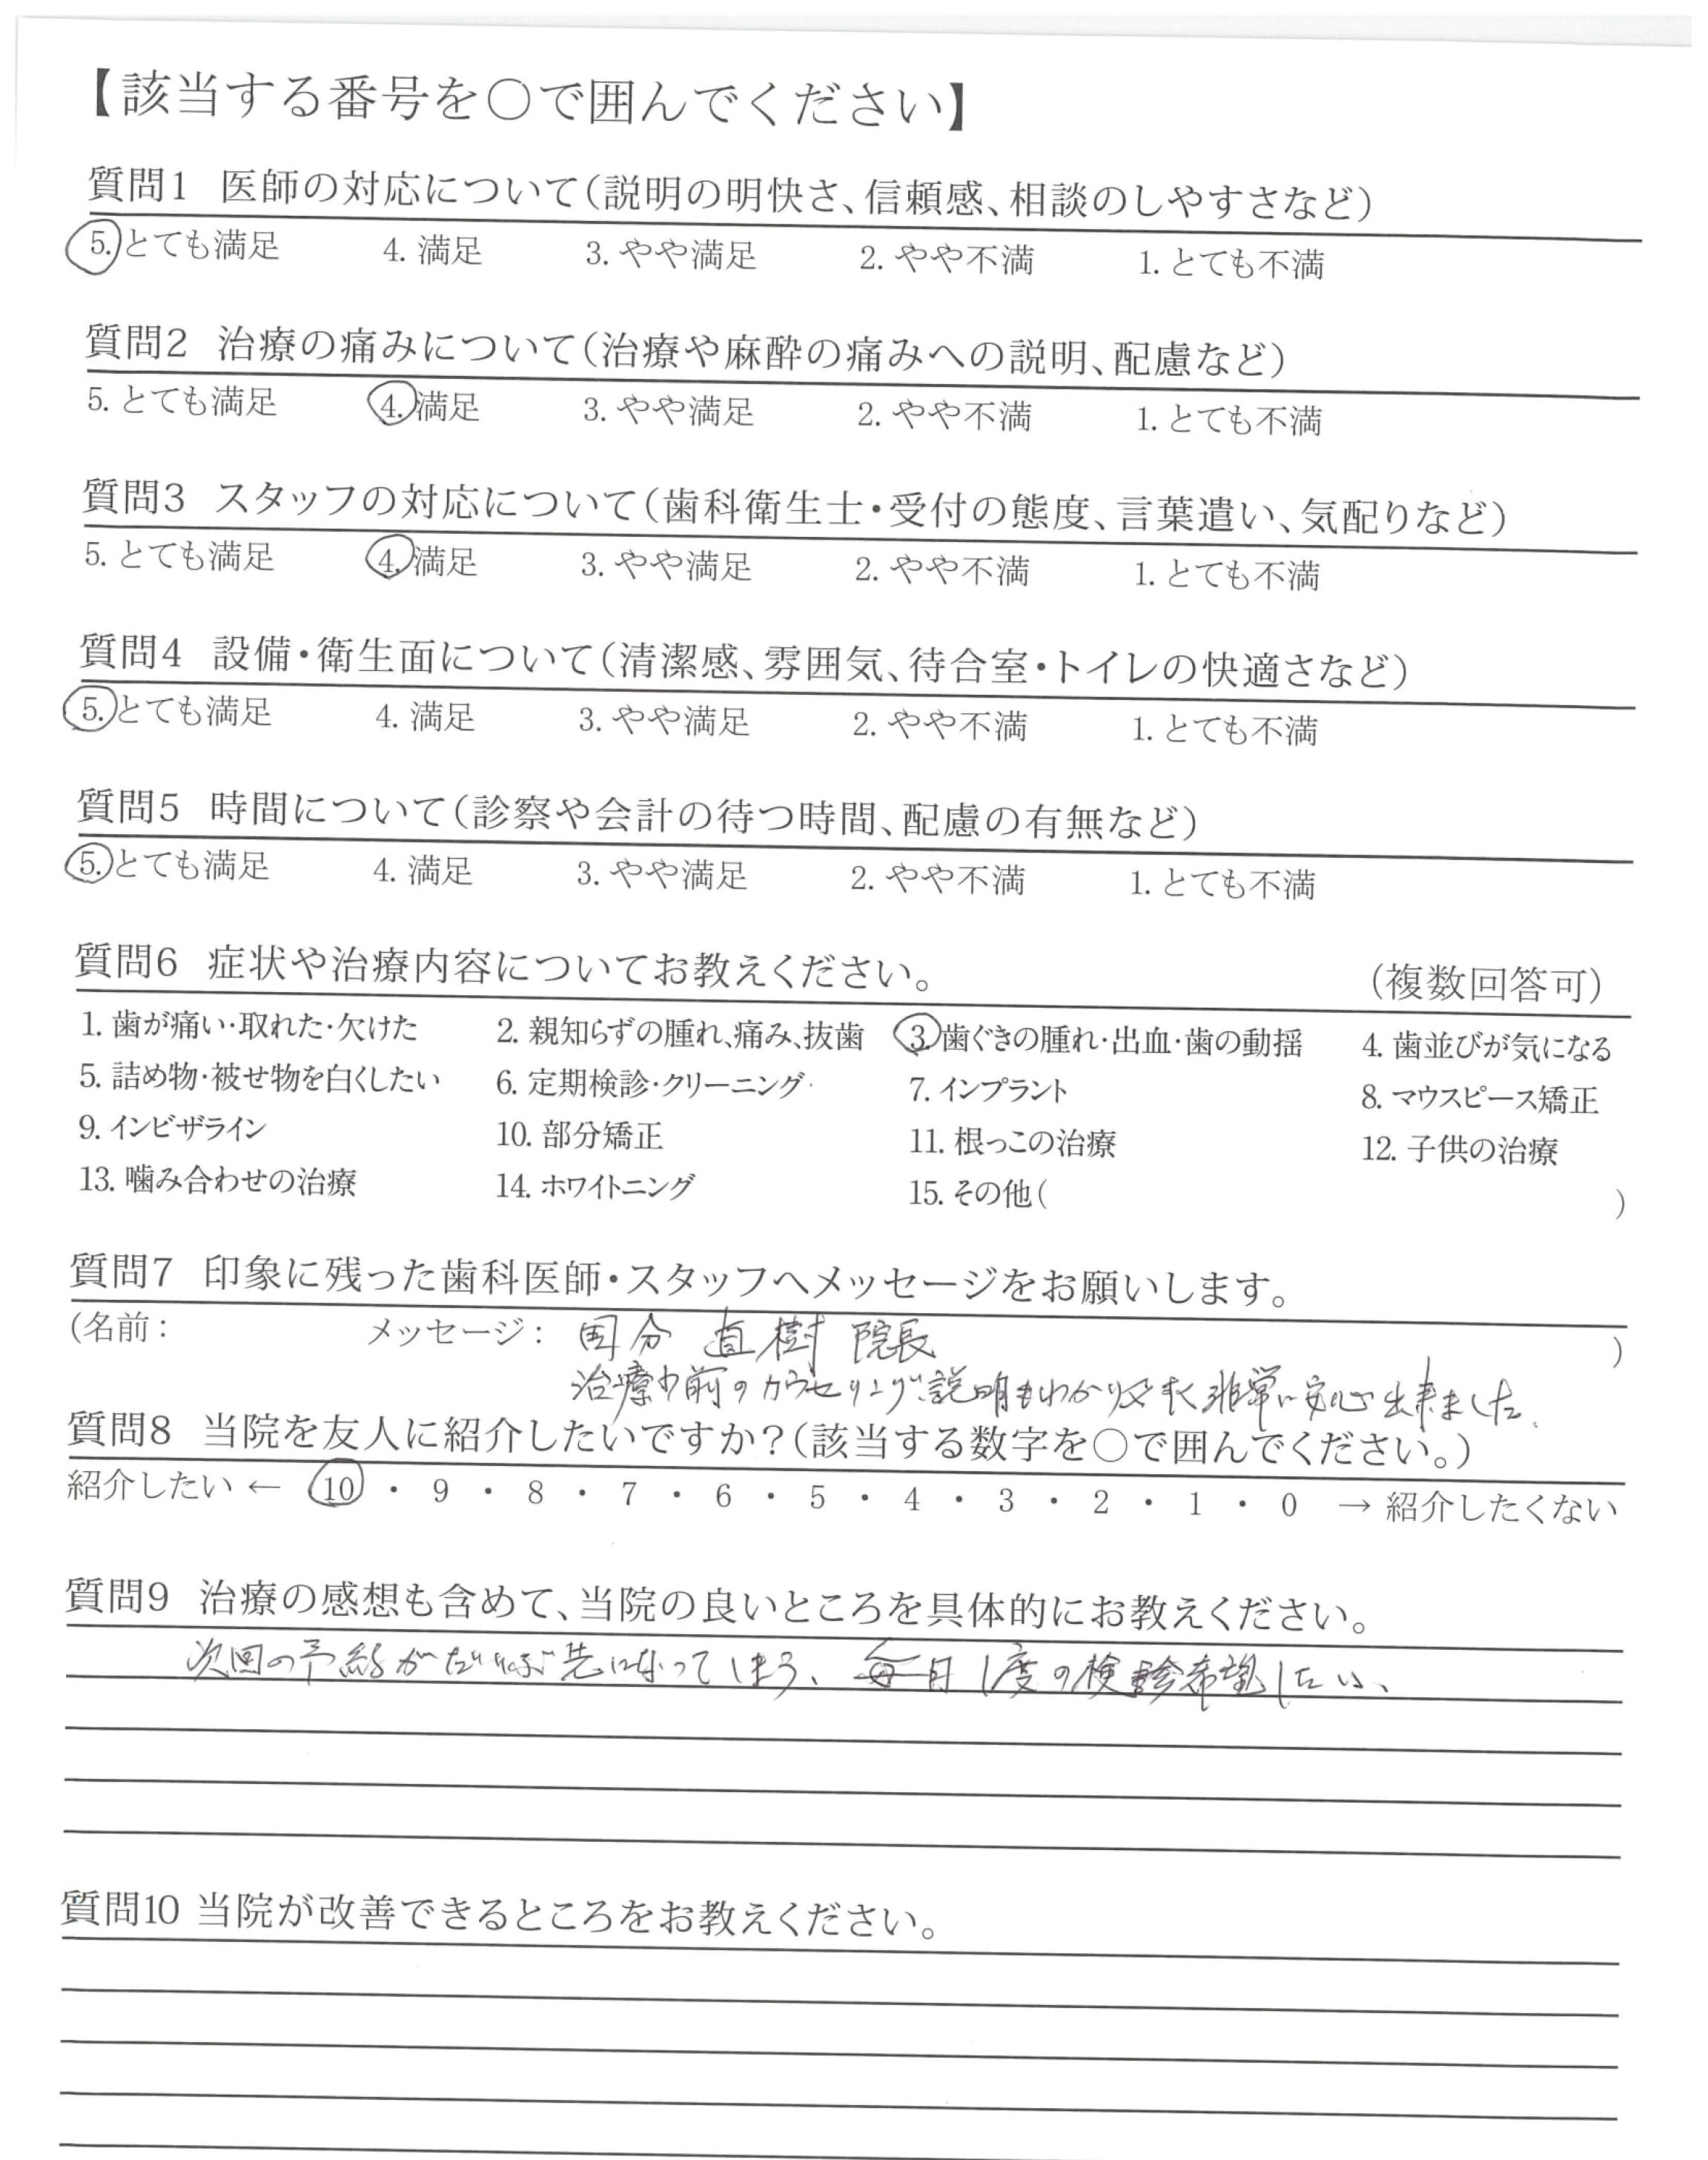 【該当する番号を○で囲んでください】
質問1 医師の対応について(説明の明快さ、信頼感、相談のしやすさなど)
5. とても満足 4. 満足 3. やや満足 2. やや不満 1. とても不満
質問2 治療の痛みについて(治療や麻酔の痛みへの説明、配慮など)
5. とても満足 4. 満足 3. やや満足 2. やや不満 1. とても不満
質問3 スタッフの対応について(歯科衛生士・受付の態度、言葉遣い、気配りなど)
5. とても満足 4. 満足 3. やや満足 2. やや不満 1. とても不満
質問4 設備・衛生面について(清潔感、雰囲気、待合室・トイレの快適さなど)
5. とても満足 4. 満足 3. やや満足 2. やや不満 1. とても不満
質問5 時間について(診察や会計の待つ時間、配慮の有無など)
5. とても満足 4. 満足 3. やや満足 2. やや不満 1. とても不満
質問6 症状や治療内容についてお教えください。 (複数回答可)
1. 歯が痛い・取れた・欠けた 2. 親知らずの腫れ、痛み、抜歯 3. 歯ぐきの腫れ・出血・歯の動揺 4. 歯並びが気になる
5. 詰め物・被せ物を白くしたい 6. 定期検診・クリーニング 7. インプラント 8. マウスピース矯正
9. インビザライン 10. 部分矯正 11. 根っこの治療 12. 子供の治療
13. 噛み合わせの治療 14. ホワイトニング 15. その他( )
質問7 印象に残った歯科医師・スタッフへメッセージをお願いします。
(名前: メッセージ: 国分 直樹 院長 )
治療や前のカウセリング、説明もわかりやすく非常に安心出来ました。
質問8 当院を友人に紹介したいですか?(該当する数字を○で囲んでください。)
紹介したい ← 10 ・ 9 ・ 8 ・ 7 ・ 6 ・ 5 ・ 4 ・ 3 ・ 2 ・ 1 ・ 0 → 紹介したくない
質問9 治療の感想も含めて、当院の良いところを具体的にお教えください。
次回の予約がだいぶ先になってしまう、毎月1度の検診希望したい、
質問10 当院が改善できるところをお教えください。